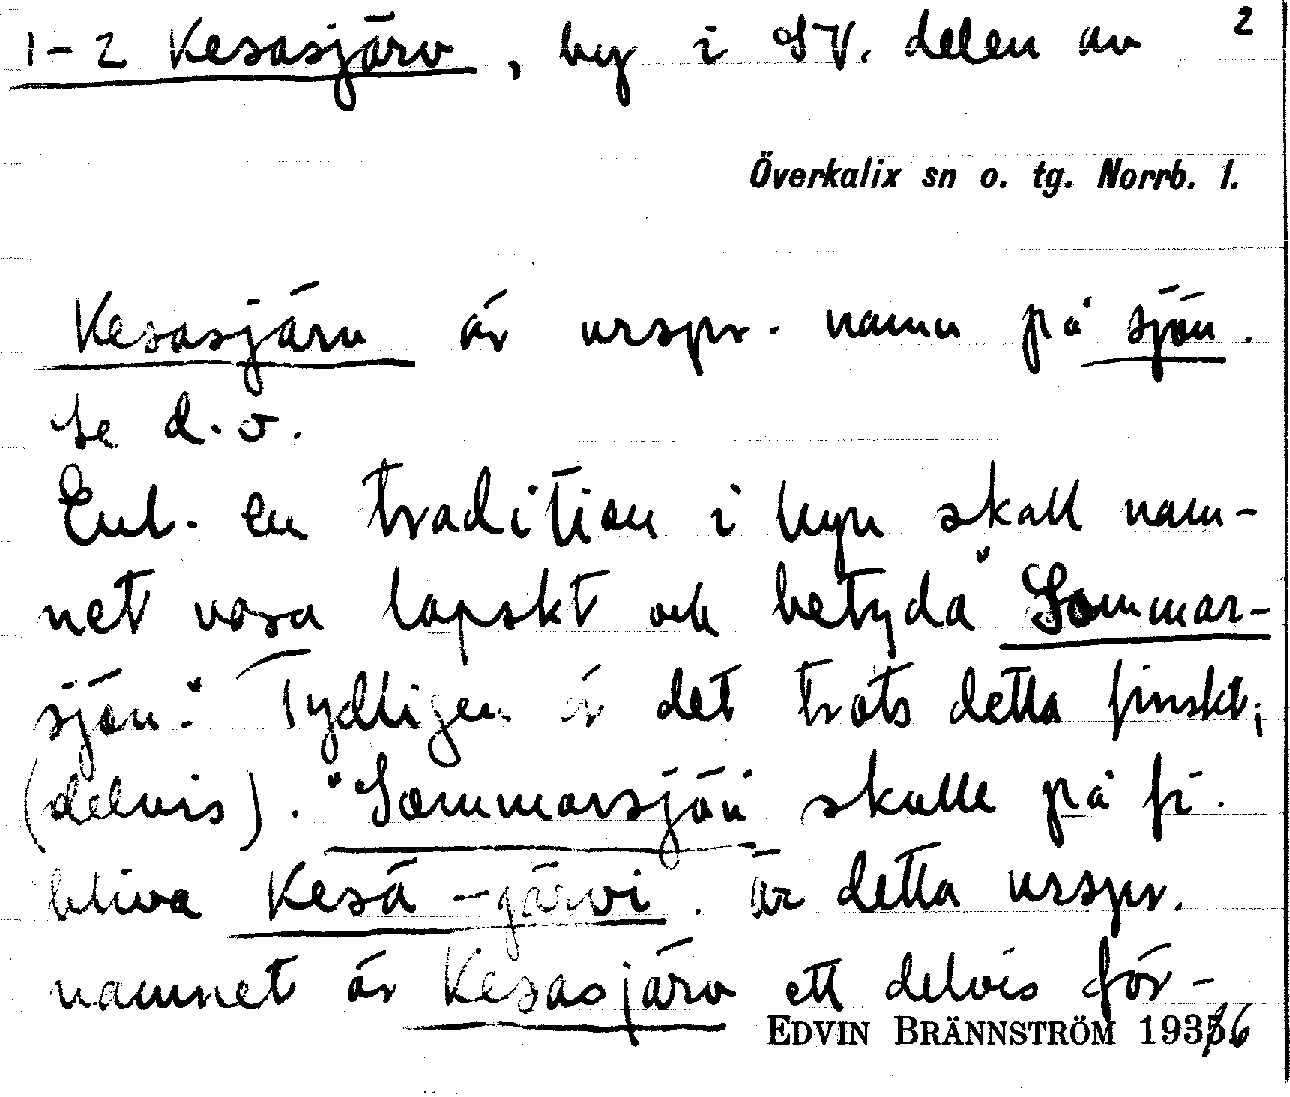 1-2 Kesasjärv, by i SV. delen av 2
Överkalix sn o. tg. Norrb. l.
Kesasjärv är urspr. namn på sjön.
Se d. o.
Enl. en tradition i byn skall nam-
net vara lapskt och betyda "Sommar-
sjön". Tydligen är det trots detta finskt,
(delvis). "Sommarsjön skulle på fi.
bliva Kesä-järvi. Är detta urspr.
namnet är Kesasjärv ett delvis för-
EDVIN BRÄNNSTRÖM 1935/6